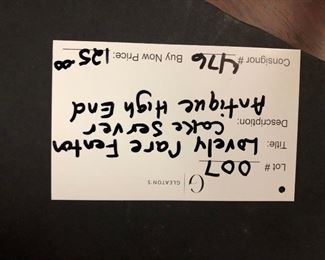 G
GLEATON'S
Lot # 007
Title: Lovely Rare Fenton
Description: Cake Server
Antique High End
Consignor # 476 Buy Now Price: 125.00